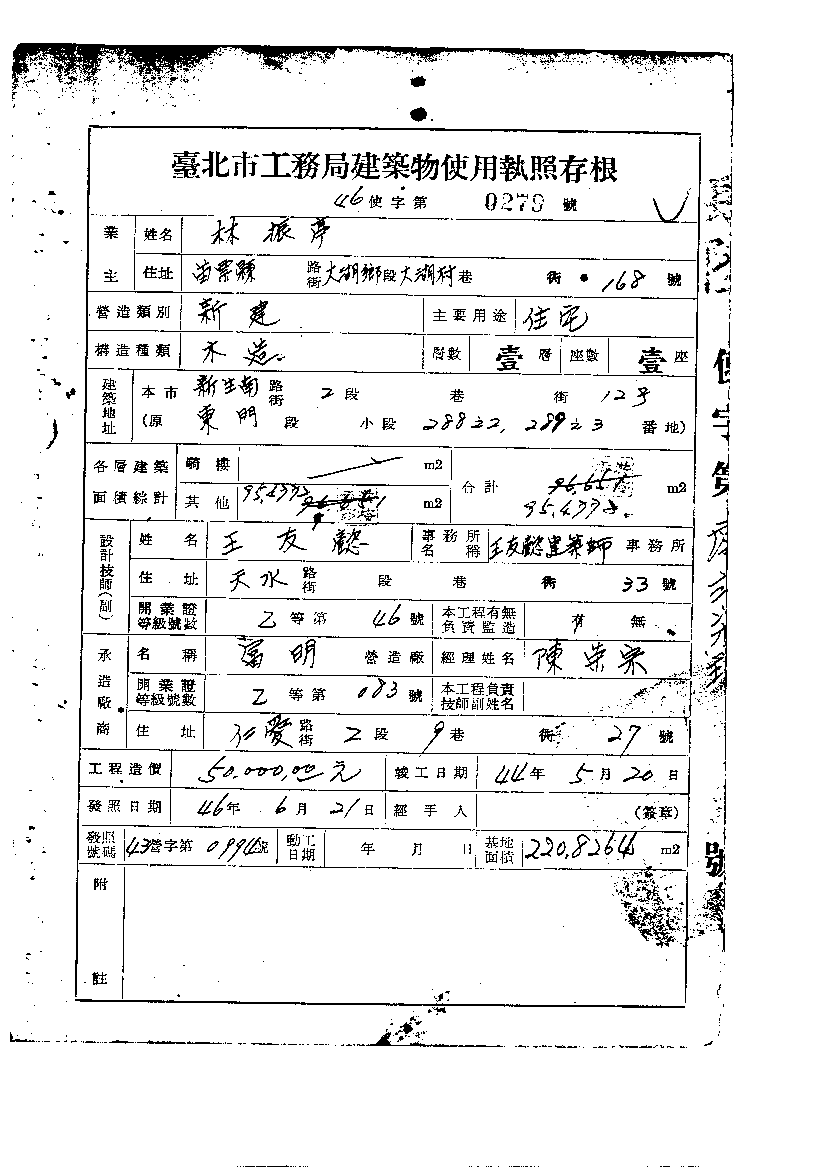 臺北市工務局建築物使用執照存根
46使字第 0279 號
業主 姓名 林振亭
住址 苗栗縣 路街 大湖鄉段大湖村巷 街 168 號
營造類別 新建 主要用途 住宅
構造種類 木造 層數 壹層 座數 壹座
建築地址 本市 新生南路街 2段 巷 街 12号
(原 東門 段 小段 288之2, 289之3 番地)
各層建築面積綜計 騎樓 m2 合計 96.651 m2
其他 95.4372 m2 95.4372
設計技師(副) 姓名 王友懿 事務所名稱 王友懿建築師 事務所
住址 天水路街 段 巷 街 33號
開業證等級號數 乙等第 46號 本工程有無負責監造 有 無
承造廠商 名稱 富明 營造廠 經理姓名 陳榮宗
開業證等級號數 乙等第 083號 本工程負責技師副姓名
住址 仁愛路街 2段 9巷 街 27號
工程造價 50,000.00元 竣工日期 44年 5月 20日
發照日期 46年 6月 21日 經手人 (簽章)
發照號碼 43營字第 0994號 動工日期 年 月 日 基地面積 220.8264 m2
附註
使字第
號